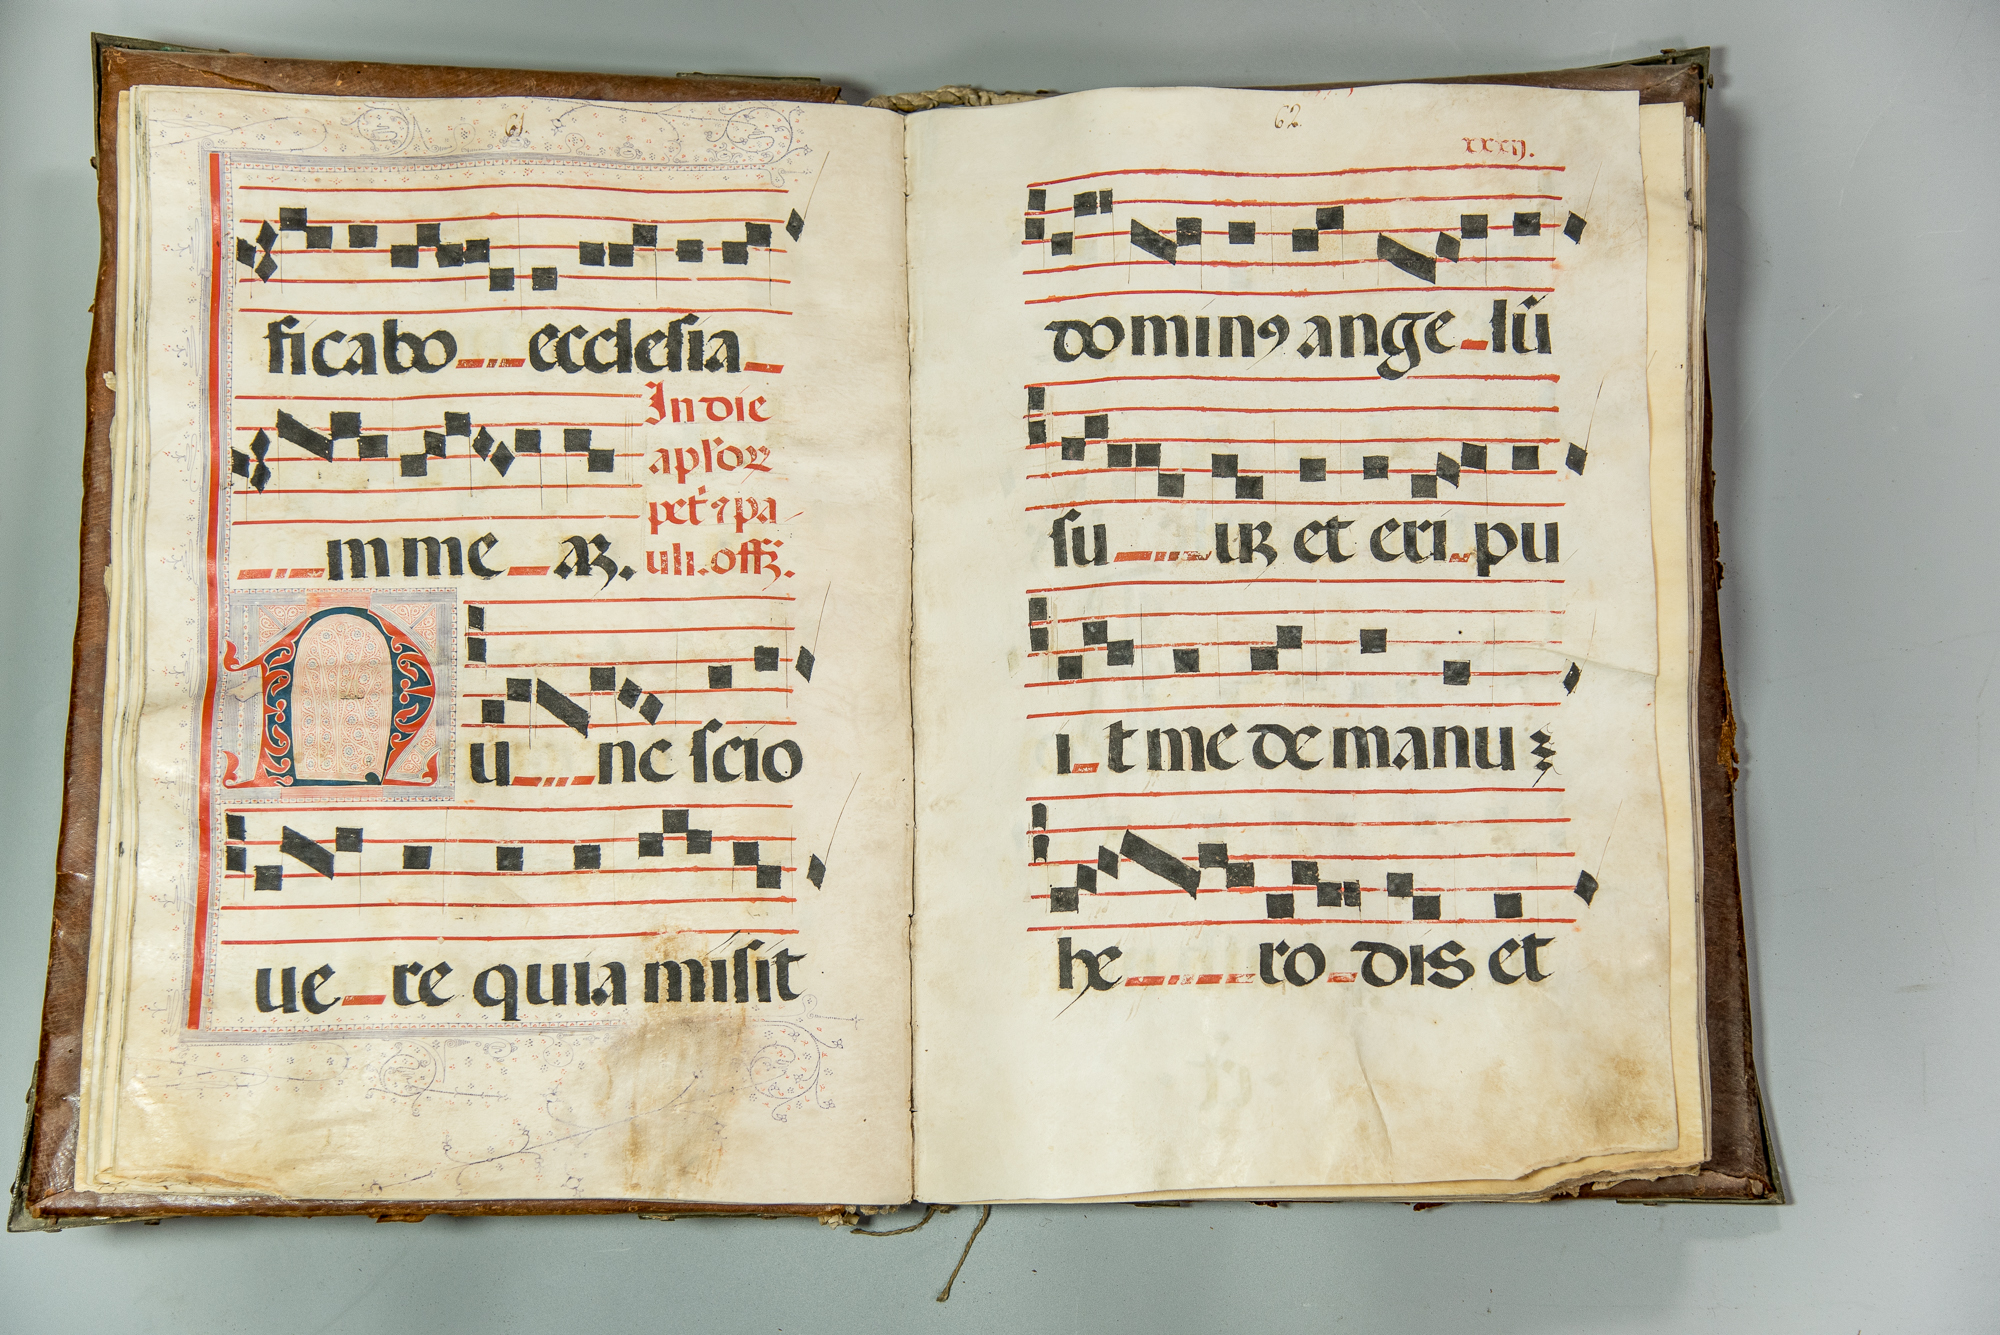 61.
ficabo ecclesia
mme aȝ.
In die
apl'oꝝ
pet' ⁊ pa
uli. offȝ.
Nunc scio
uere quia misit
62.
xxxij.
dominꝰ angelū
suuꝫ et eripu
it me de manu
herodis et